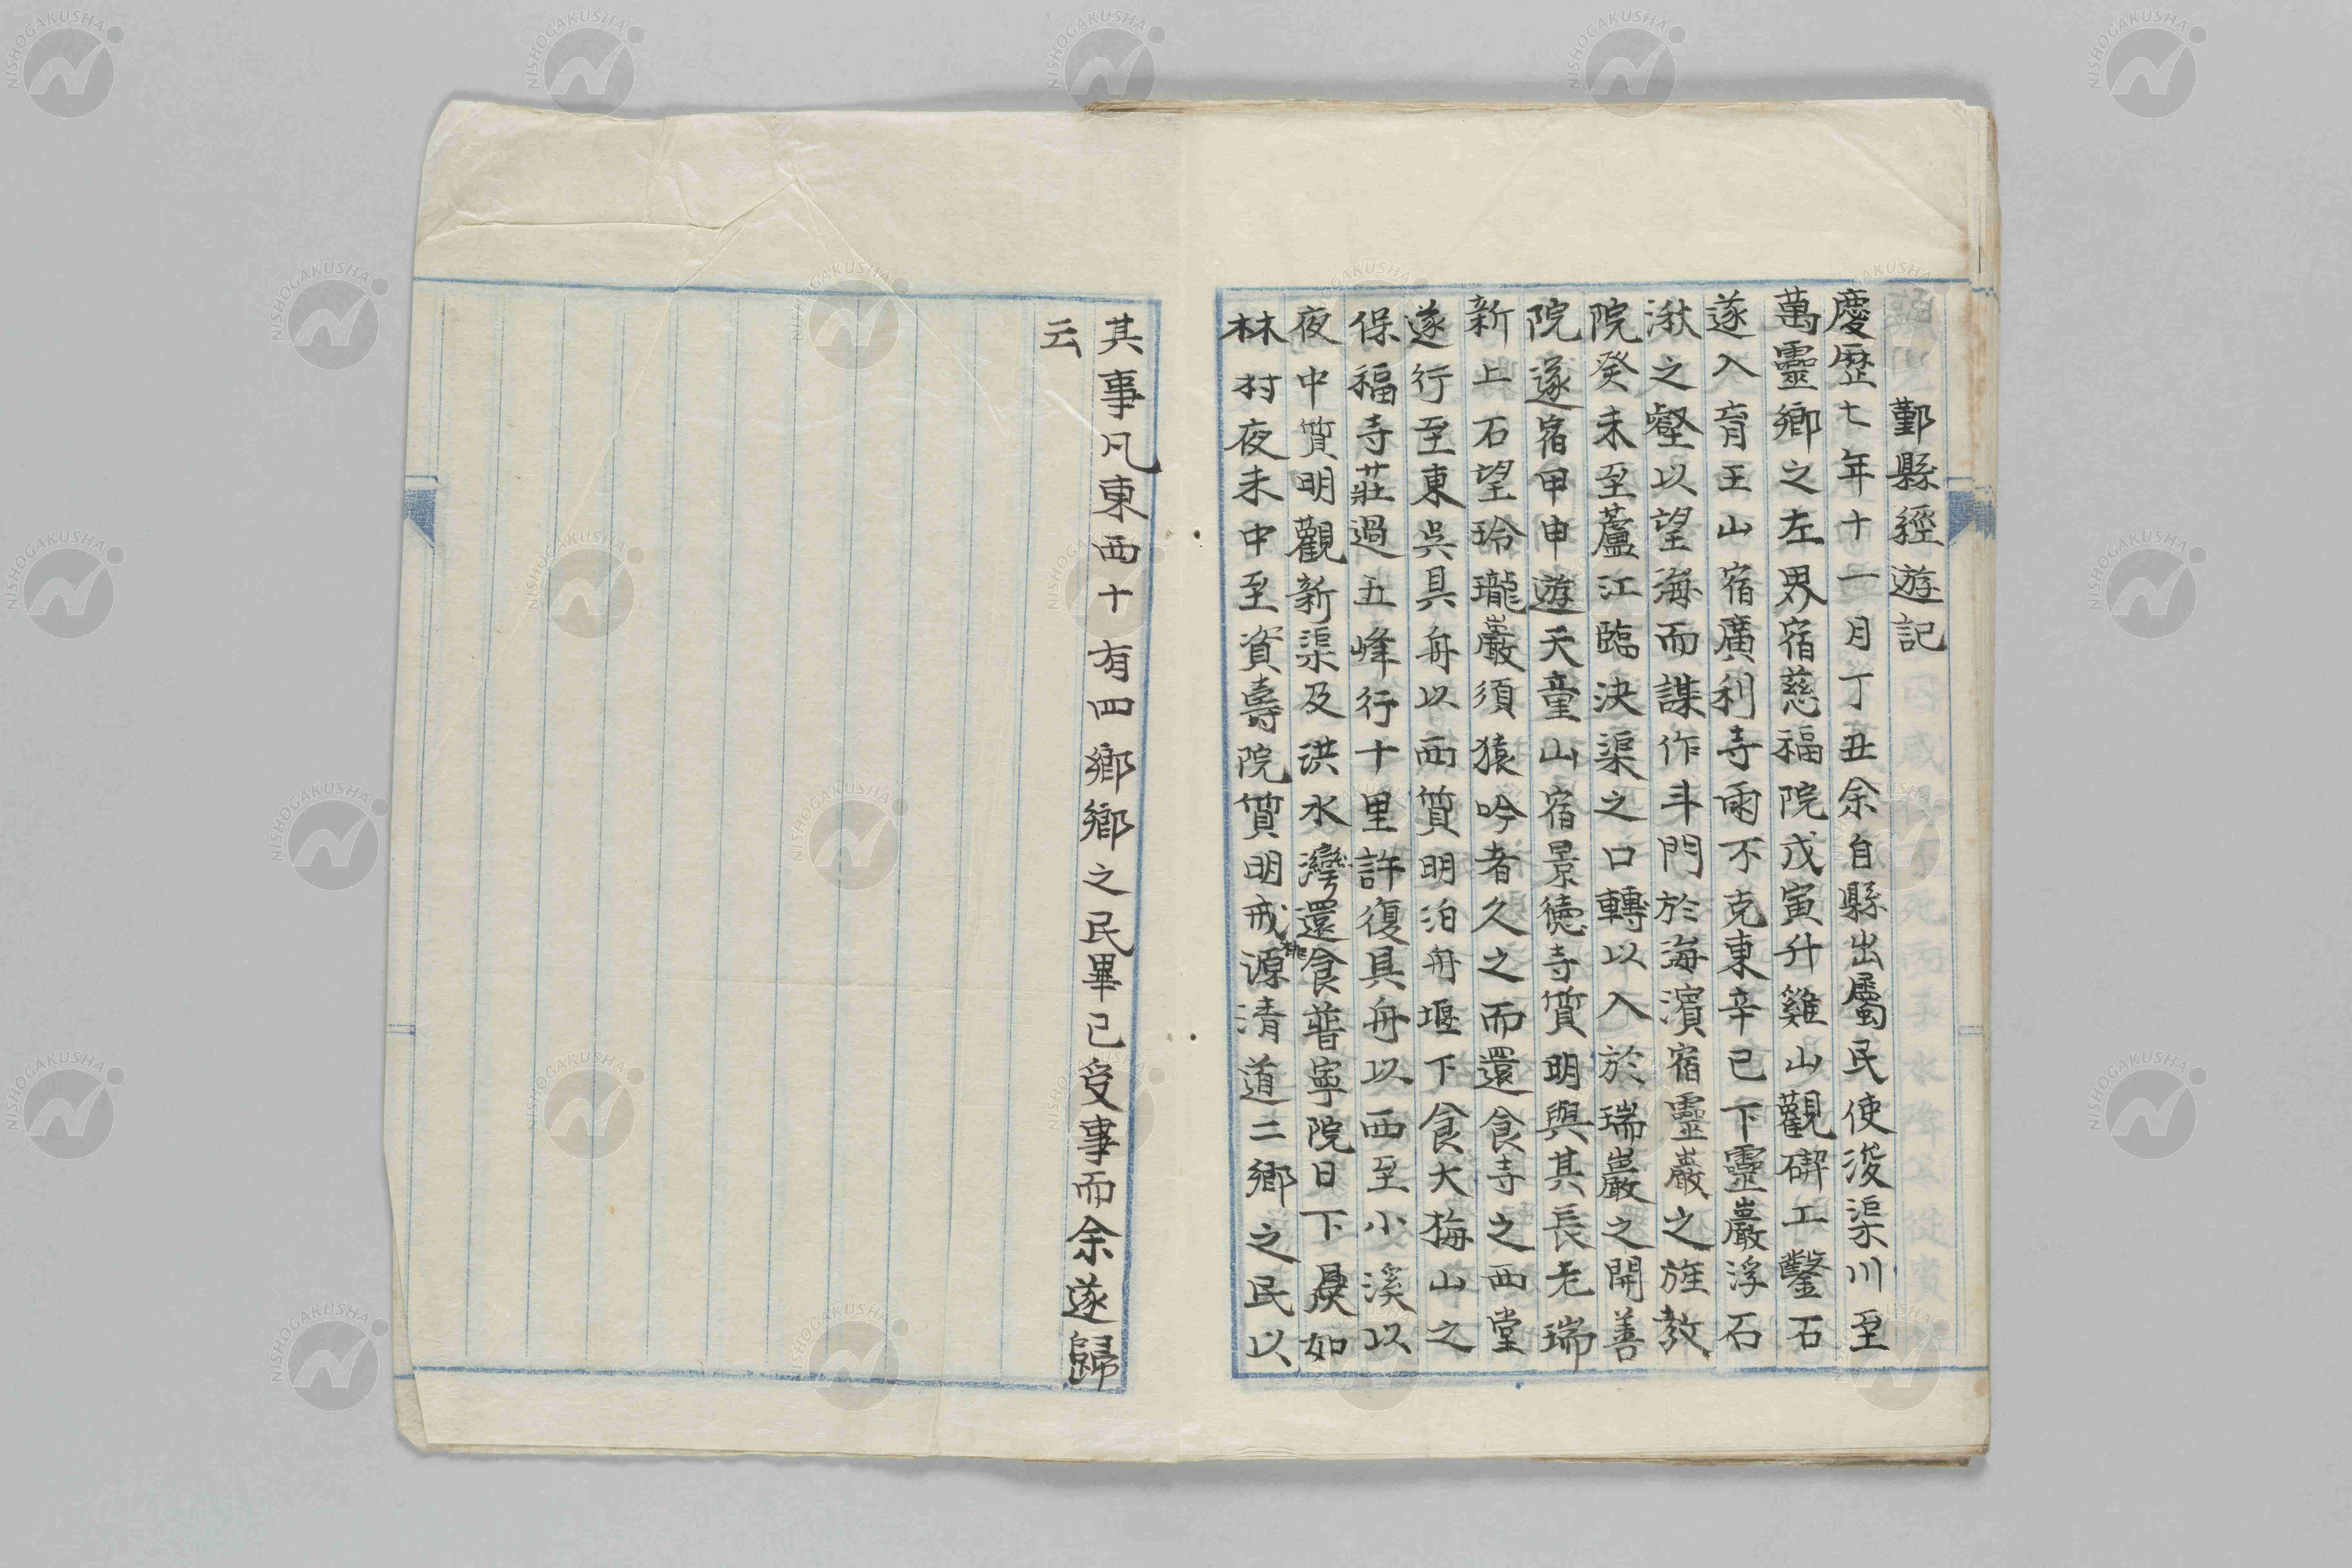 鄞縣經遊記
慶歷七年十一月丁丑余自縣出屬民使浚渠川至
萬靈鄉之左界宿慈福院戊寅升雞山觀碶工鑿石
遂入育王山宿廣利寺雨不克東辛已下靈巖浮石
湫之壑以望海而謀作斗門於海濱宿靈巖之旌教
院癸未至蘆江臨決渠之口轉以入於瑞巖之開善
院遂宿甲申遊天童山宿景德寺質明與其長老瑞
新上石望玲瓏巖須猿吟者久之而還食寺之西堂
遂行至東吳具舟以西質明泊舟堰下食大梅山之
保福寺莊過五峰行十里許復具舟以西至小溪以
夜中質明觀新渠及洪水灣還食普寧院日下昃如
林村夜未中至資壽院質明戒桃源清道二鄉之民以
其事凡東西十有四鄉鄉之民畢已受事而余遂歸
云
NISHOGAKUSHA